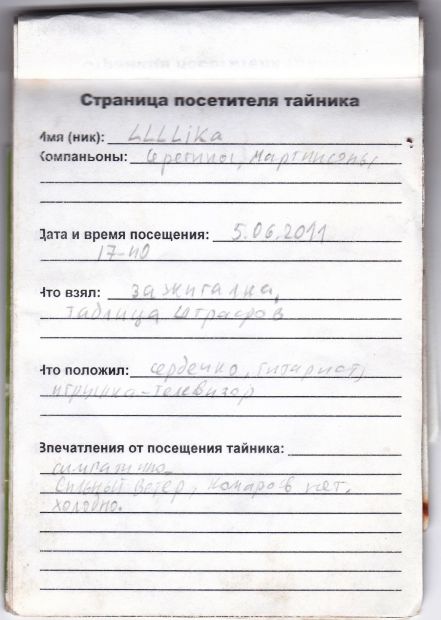 Страница посетителя тайника
Имя (ник): LLLLiKa
Компаньоны: Мартинсоны
Дата и время посещения: 5.06.2011
17-40
Что взял: зажигалка,
таблица штрафов
Что положил: сердечко, гитарист,
игрушка-телевизор
Впечатления от посещения тайника:
симпатично.
Сильный ветер, комаров нет.
холодно.